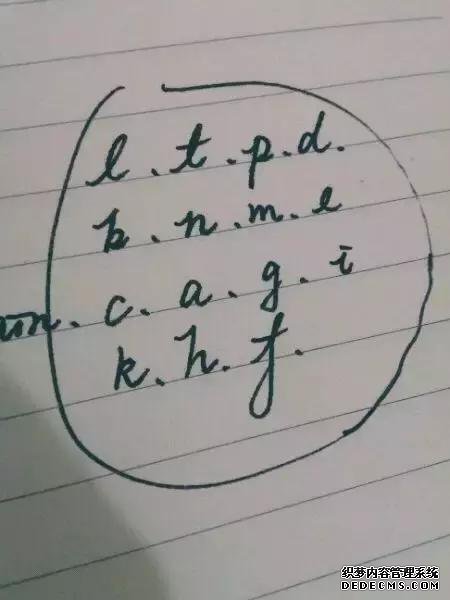 l . t . p . d .
b . n . m . e
c . a . g . i
k . h . f .
织梦内容管理系统
DEDECMS.COM